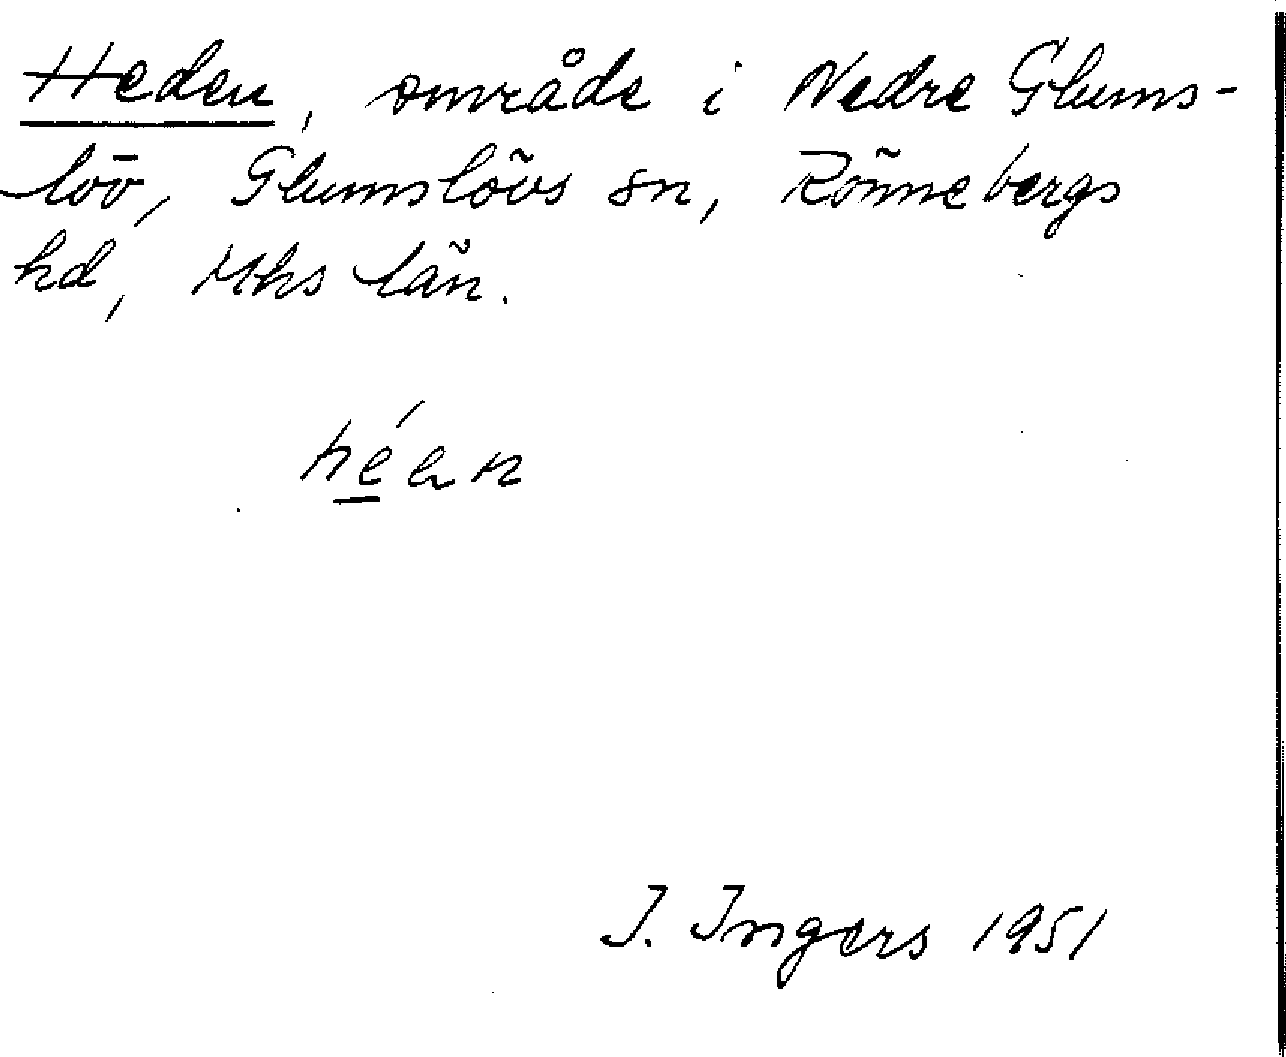 Heden, område i Nedre Glums-
löv, Glumslövs sn, Rönnebergs
hd, Mhs län.
héan
I. Ingers 1951